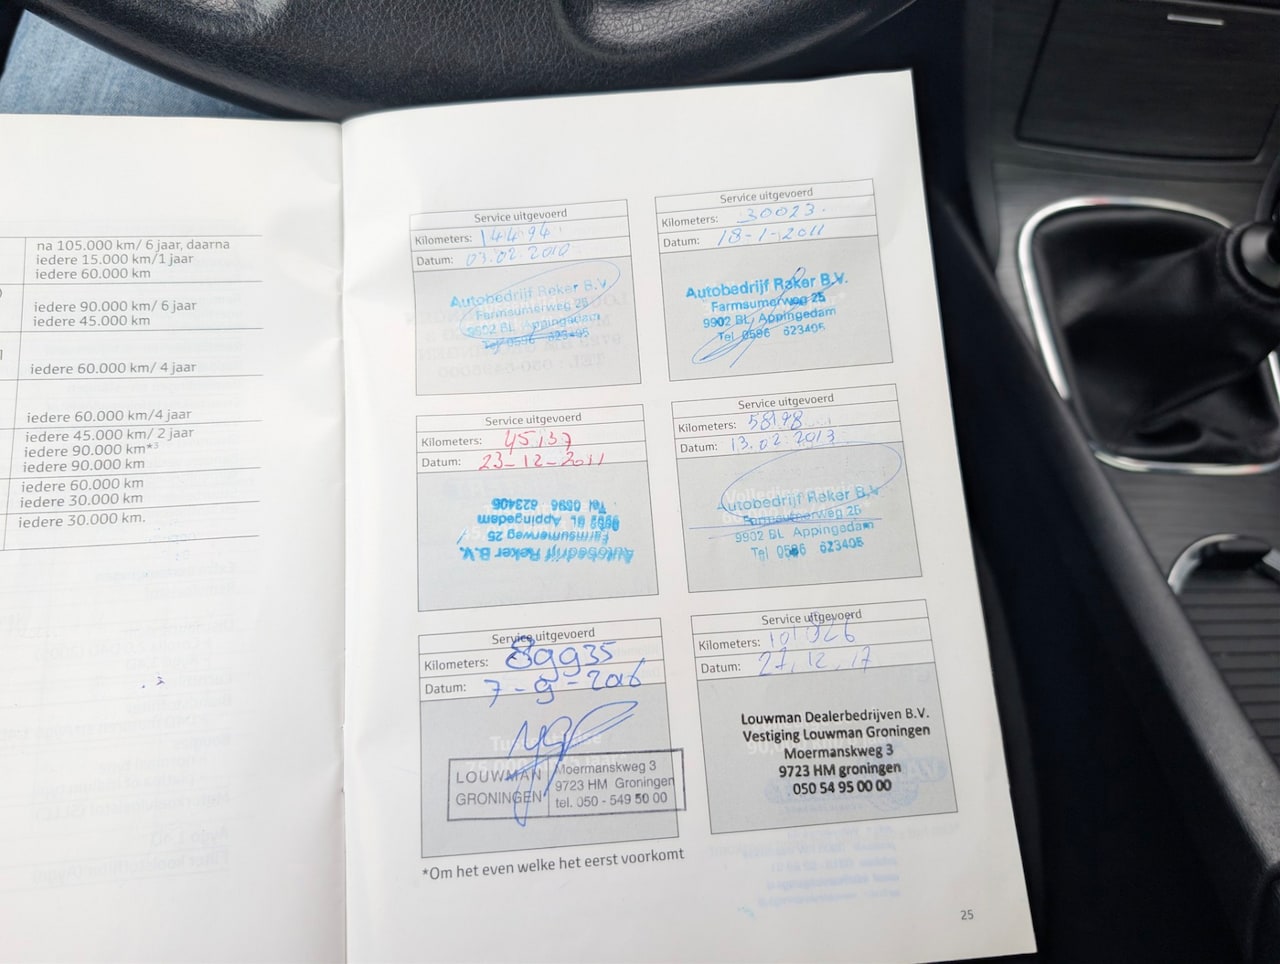 na 105.000 km/ 6 jaar, daarna
iedere 15.000 km/1 jaar
iedere 60.000 km
iedere 90.000 km/ 6 jaar
iedere 45.000 km
iedere 60.000 km/ 4 jaar
iedere 60.000 km/4 jaar
iedere 45.000 km/ 2 jaar
iedere 90.000 km*³
iedere 90.000 km
iedere 60.000 km
iedere 30.000 km
iedere 30.000 km.
Service uitgevoerd
Kilometers: 14494
Datum: 03.02.2010
Autobedrijf Reker B.V.
Farmsumerweg 25
9902 BL Appingedam
Tel 0596 623405
Service uitgevoerd
Kilometers: 30023.
Datum: 18-1-2011
Autobedrijf Reker B.V.
Farmsumerweg 25
9902 BL Appingedam
Tel 0596 623405
Service uitgevoerd
Kilometers: 45137
Datum: 23-12-2011
Autobedrijf Reker B.V.
Farmsumerweg 25
9902 BL Appingedam
Tel 0596 623405
Service uitgevoerd
Kilometers: 58198
Datum: 13.02.2013
Autobedrijf Reker B.V.
Farmsumerweg 25
9902 BL Appingedam
Tel 0596 623405
Service uitgevoerd
Kilometers: 89935
Datum: 7-9-2016
LOUWMAN GRONINGEN
Moermanskweg 3
9723 HM Groningen
tel. 050 - 549 50 00
Service uitgevoerd
Kilometers: 101026
Datum: 27.12.17
Louwman Dealerbedrijven B.V.
Vestiging Louwman Groningen
Moermanskweg 3
9723 HM groningen
050 54 95 00 00
*Om het even welke het eerst voorkomt
25